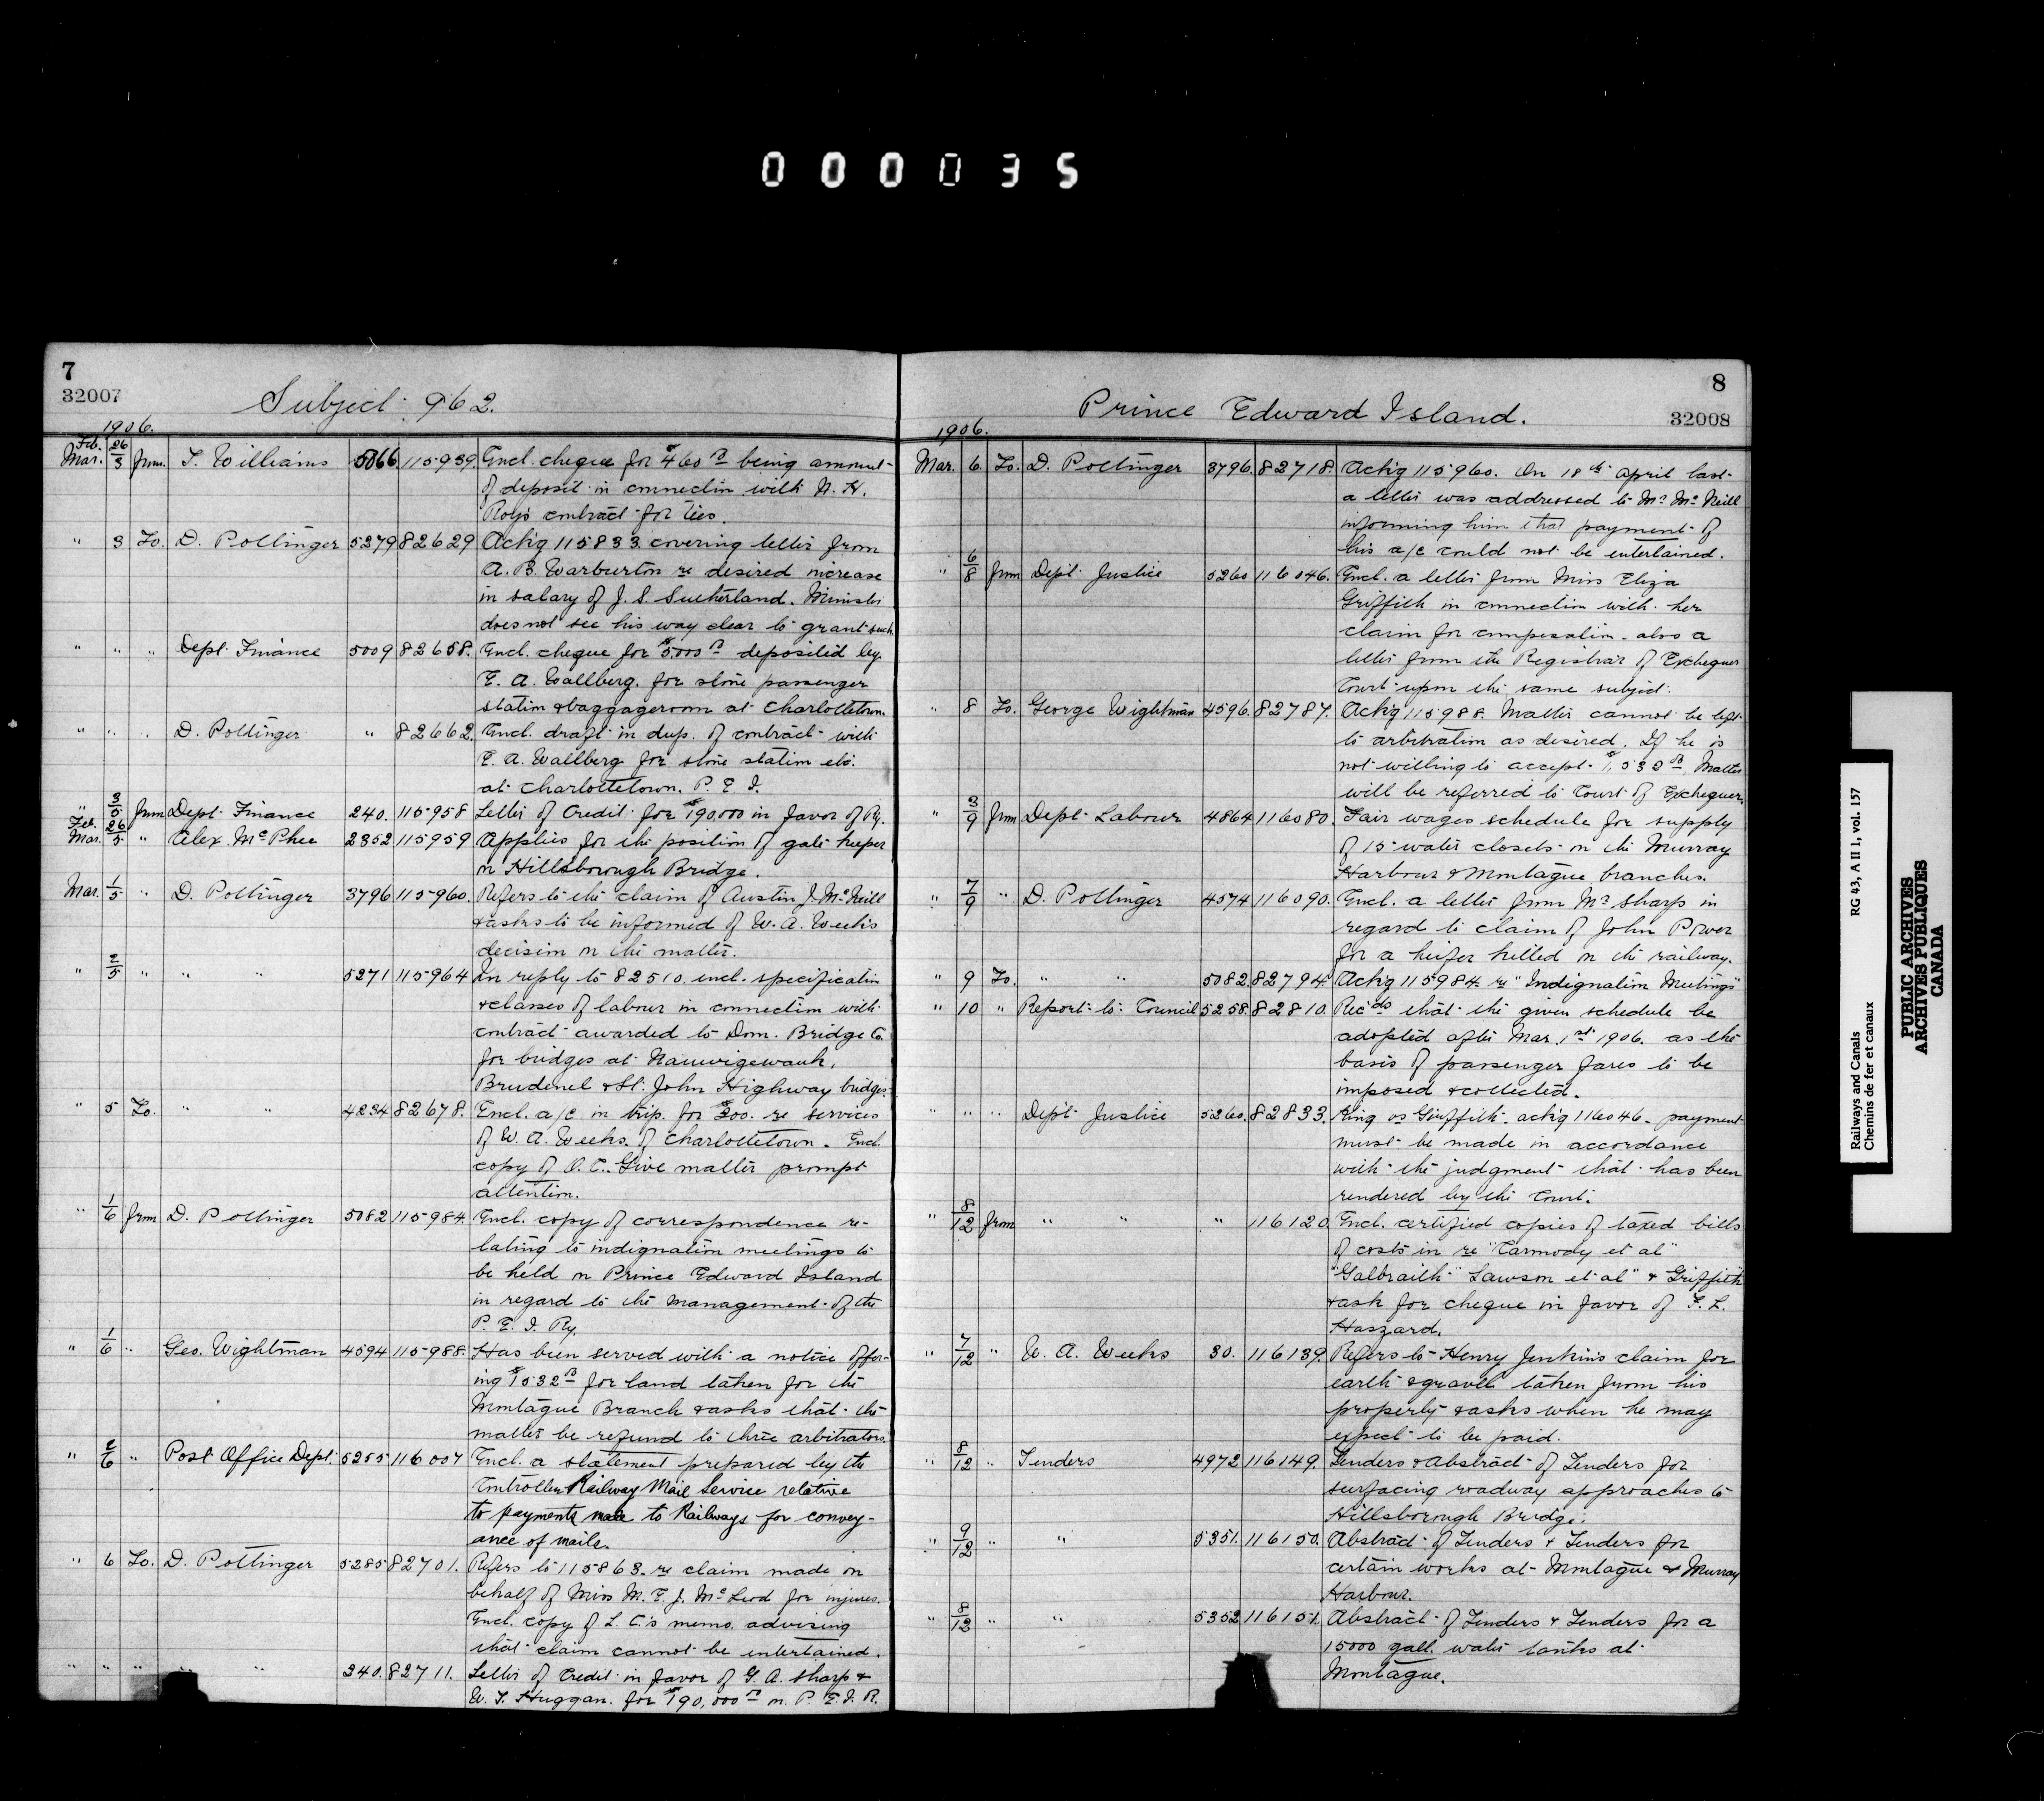 000035
7
32007
Subject 962.
1906.
Feb. 26
Mar. 3 from T. Williams 5066 115939. Encl. cheque for $460 00 being amount
of deposit in connection with N. H.
Roy's contract for ties.
" 3 To. D. Pottinger 5279 82629 Ack'g 115833. covering letter from
A. B. Warburton re desired increase
in salary of J. S. Sutherland. Minister
does not see his way clear to grant such.
" " " Dept. Finance 5009 82658. Encl. cheque for $5000 00 deposited by
E. A. Wallberg. for stone passenger
station & baggageroom at Charlottetown.
" " " D. Pottinger " 82662. Encl. draft in dup. of contract with
E. A. Wallberg for stone station etc.
at Charlottetown. P. E. I.
" 3/5 from Dept. Finance 240. 115958 Letter of Credit for $190,000 in favor of Ry.
Feb. 26
Mar. 5 " Alex. McPhee 2352 115959 Applies for the position of gate keeper
on Hillsborough Bridge.
Mar. 1/5 " D. Pottinger 3796 115960. Refers to the claim of Austin J. McNeill
& asks to be informed of W. A. Week's
decision on the matter.
" 2/5 " " " 5271 115964 In reply to 82510. encl. specification
& classes of labour in connection with
contract awarded to Dom. Bridge Co.
for bridges at Nauwigewauk,
Brudenel & St. John Highway bridges.
" 5 To. " " 4234 82678. Encl. a/c in trip. for $200. re services
of W. A. Weeks. of Charlottetown. Encl.
copy of O. C. Give matter prompt
attention.
" 1/6 from D. Pottinger 5082 115984. Encl. copy of correspondence re-
lating to indignation meetings to
be held on Prince Edward Island
in regard to the management of the
P. E. I. Ry.
" 1/6 " Geo. Wightman 4594 115988. Has been served with a notice offer-
ing $1532 00 for land taken for the
Montague Branch & asks that the
matter be refund to three arbitrators.
" 2/6 " Post Office Dept. 5255 116007 Encl. a statement prepared by the
Controller Railway Mail Service relative
to payments made to Railways for convey-
ance of mails.
" 6 To. D. Pottinger 5285 82701. Refers to 115863. re claim made on
behalf of Miss M. E. J. McLeod for injuries.
Encl. copy of L. C.'s memo. advising
that claim cannot be entertained.
" " " " " 240. 82711. Letter of Credit in favor of G. A. Sharp &
W. T. Huggan. for $190,000 00 on P. E. I. R.
8
Prince Edward Island.
32008
1906.
Mar. 6 To. D. Pottinger 3796. 82718. Ack'g 115960. On 18th April last
a letter was addressed to Mr McNeill
informing him that payment of
his a/c could not be entertained.
" 6/8 from Dept. Justice 5260 116046. Encl. a letter from Miss Eliza
Griffith in connection with her
claim for compensation. also a
letter from the Registrar of Exchequer
Court upon the same subject.
" 8 To. George Wightman 4596. 82787. Ack'g 115988. Matter cannot be left
to arbitration as desired. If he is
not willing to accept $1,532 00. Matter
will be referred to Court of Exchequer.
" 3/9 from Dept. Labour 4864 116080. Fair wages schedule for supply
of 15 water closets on the Murray
Harbour & Montague branches.
" 7/9 " D. Pottinger 4574 116090. Encl. a letter from Mr Sharp in
regard to claim of John Power
for a heifer killed on the railway.
" 9 To. " " 5082. 82794. Ack'g 115984 re "Indignation Meetings"
" 10 " Report to Council 5258. 82810. Rec'ds that the given schedule be
adopted after Mar. 1st 1906. as the
basis of passenger fares to be
imposed & collected.
" " " Dep't Justice 5260. 82833. King vs Griffith. ack'g 116046. payment
must be made in accordance
with the judgment that has been
rendered by the Court.
" 8/12 from " " " 116120. Encl. certified copies of taxed bills
of costs in re "Carmody et al"
"Galbraith" "Lawson et al" & Griffith
& ask for cheque in favor of F. L.
Haszard.
" 7/12 " W. A. Weeks 30. 116139. Refers to Henry Jenkins claim for
earth & gravel taken from his
property & asks when he may
expect to be paid.
" 8/12 " Tenders 4972 116149. Tenders & Abstract of Tenders for
surfacing roadway approaches to
Hillsborough Bridge.
" 9/12 " " 5351. 116150. Abstract of Tenders & Tenders for
certain works at Montague & Murray
Harbour.
" 8/12 " " 5352 116151. Abstract of Tenders & Tenders for a
15000 gall. water tanks at
Montague.
Railways and Canals
Chemins de fer et canaux
RG 43, A II 1, vol. 157
PUBLIC ARCHIVES
ARCHIVES PUBLIQUES
CANADA